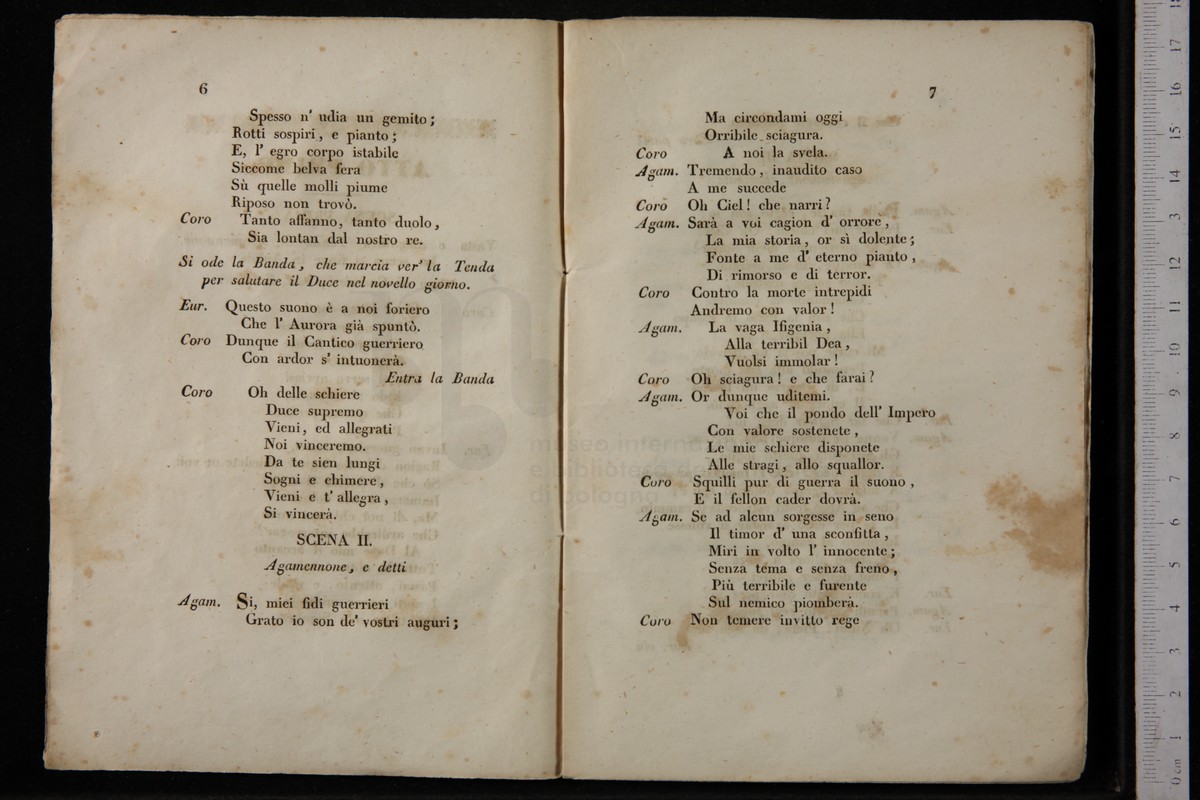 6
Spesso n' udia un gemito;
Rotti sospiri, e pianto;
E, l' egro corpo istabile
Siccome belva fera
Sù quelle molli piume
Riposo non trovò.
Coro Tanto affanno, tanto duolo,
Sia lontan dal nostro re.
Si ode la Banda, che marcia ver' la Tenda
per salutare il Duce nel novello giorno.
Eur. Questo suono è a noi foriero
Che l' Aurora già spuntò.
Coro Dunque il Cantico guerriero
Con ardor s' intuonerà.
Entra la Banda
Coro Oh delle schiere
Duce supremo
Vieni, ed allegrati
Noi vinceremo.
Da te sien lungi
Sogni e chimere,
Vieni e t' allegra,
Si vincerà.
SCENA II.
Agamennone, e detti
Agam. Si, miei fidi guerrieri
Grato io son de' vostri auguri;
7
Ma circondami oggi
Orribile sciagura.
Coro A noi la svela.
Agam. Tremendo, inaudito caso
A me succede
Coro Oh Ciel! che narri?
Agam. Sarà a voi cagion d' orrore,
La mia storia, or sì dolente;
Fonte a me d' eterno pianto,
Di rimorso e di terror.
Coro Contro la morte intrepidi
Andremo con valor!
Agam. La vaga Ifigenia,
Alla terribil Dea,
Vuolsi immolar!
Coro Oh sciagura! e che farai?
Agam. Or dunque uditemi.
Voi che il pondo dell' Impero
Con valore sostenete,
Le mie schiere disponete
Alle stragi, allo squallor.
Coro Squilli pur di guerra il suono,
E il fellon cader dovrà.
Agam. Se ad alcun sorgesse in seno
Il timor d' una sconfitta,
Miri in volto l' innocente;
Senza tema e senza freno,
Più terribile e furente
Sul nemico piomberà.
Coro Non temere invitto rege
museo interna
e biblioteca de
di bologna
0 cm 1 2 3 4 5 6 7 8 9 10 11 12 13 14 15 16 17